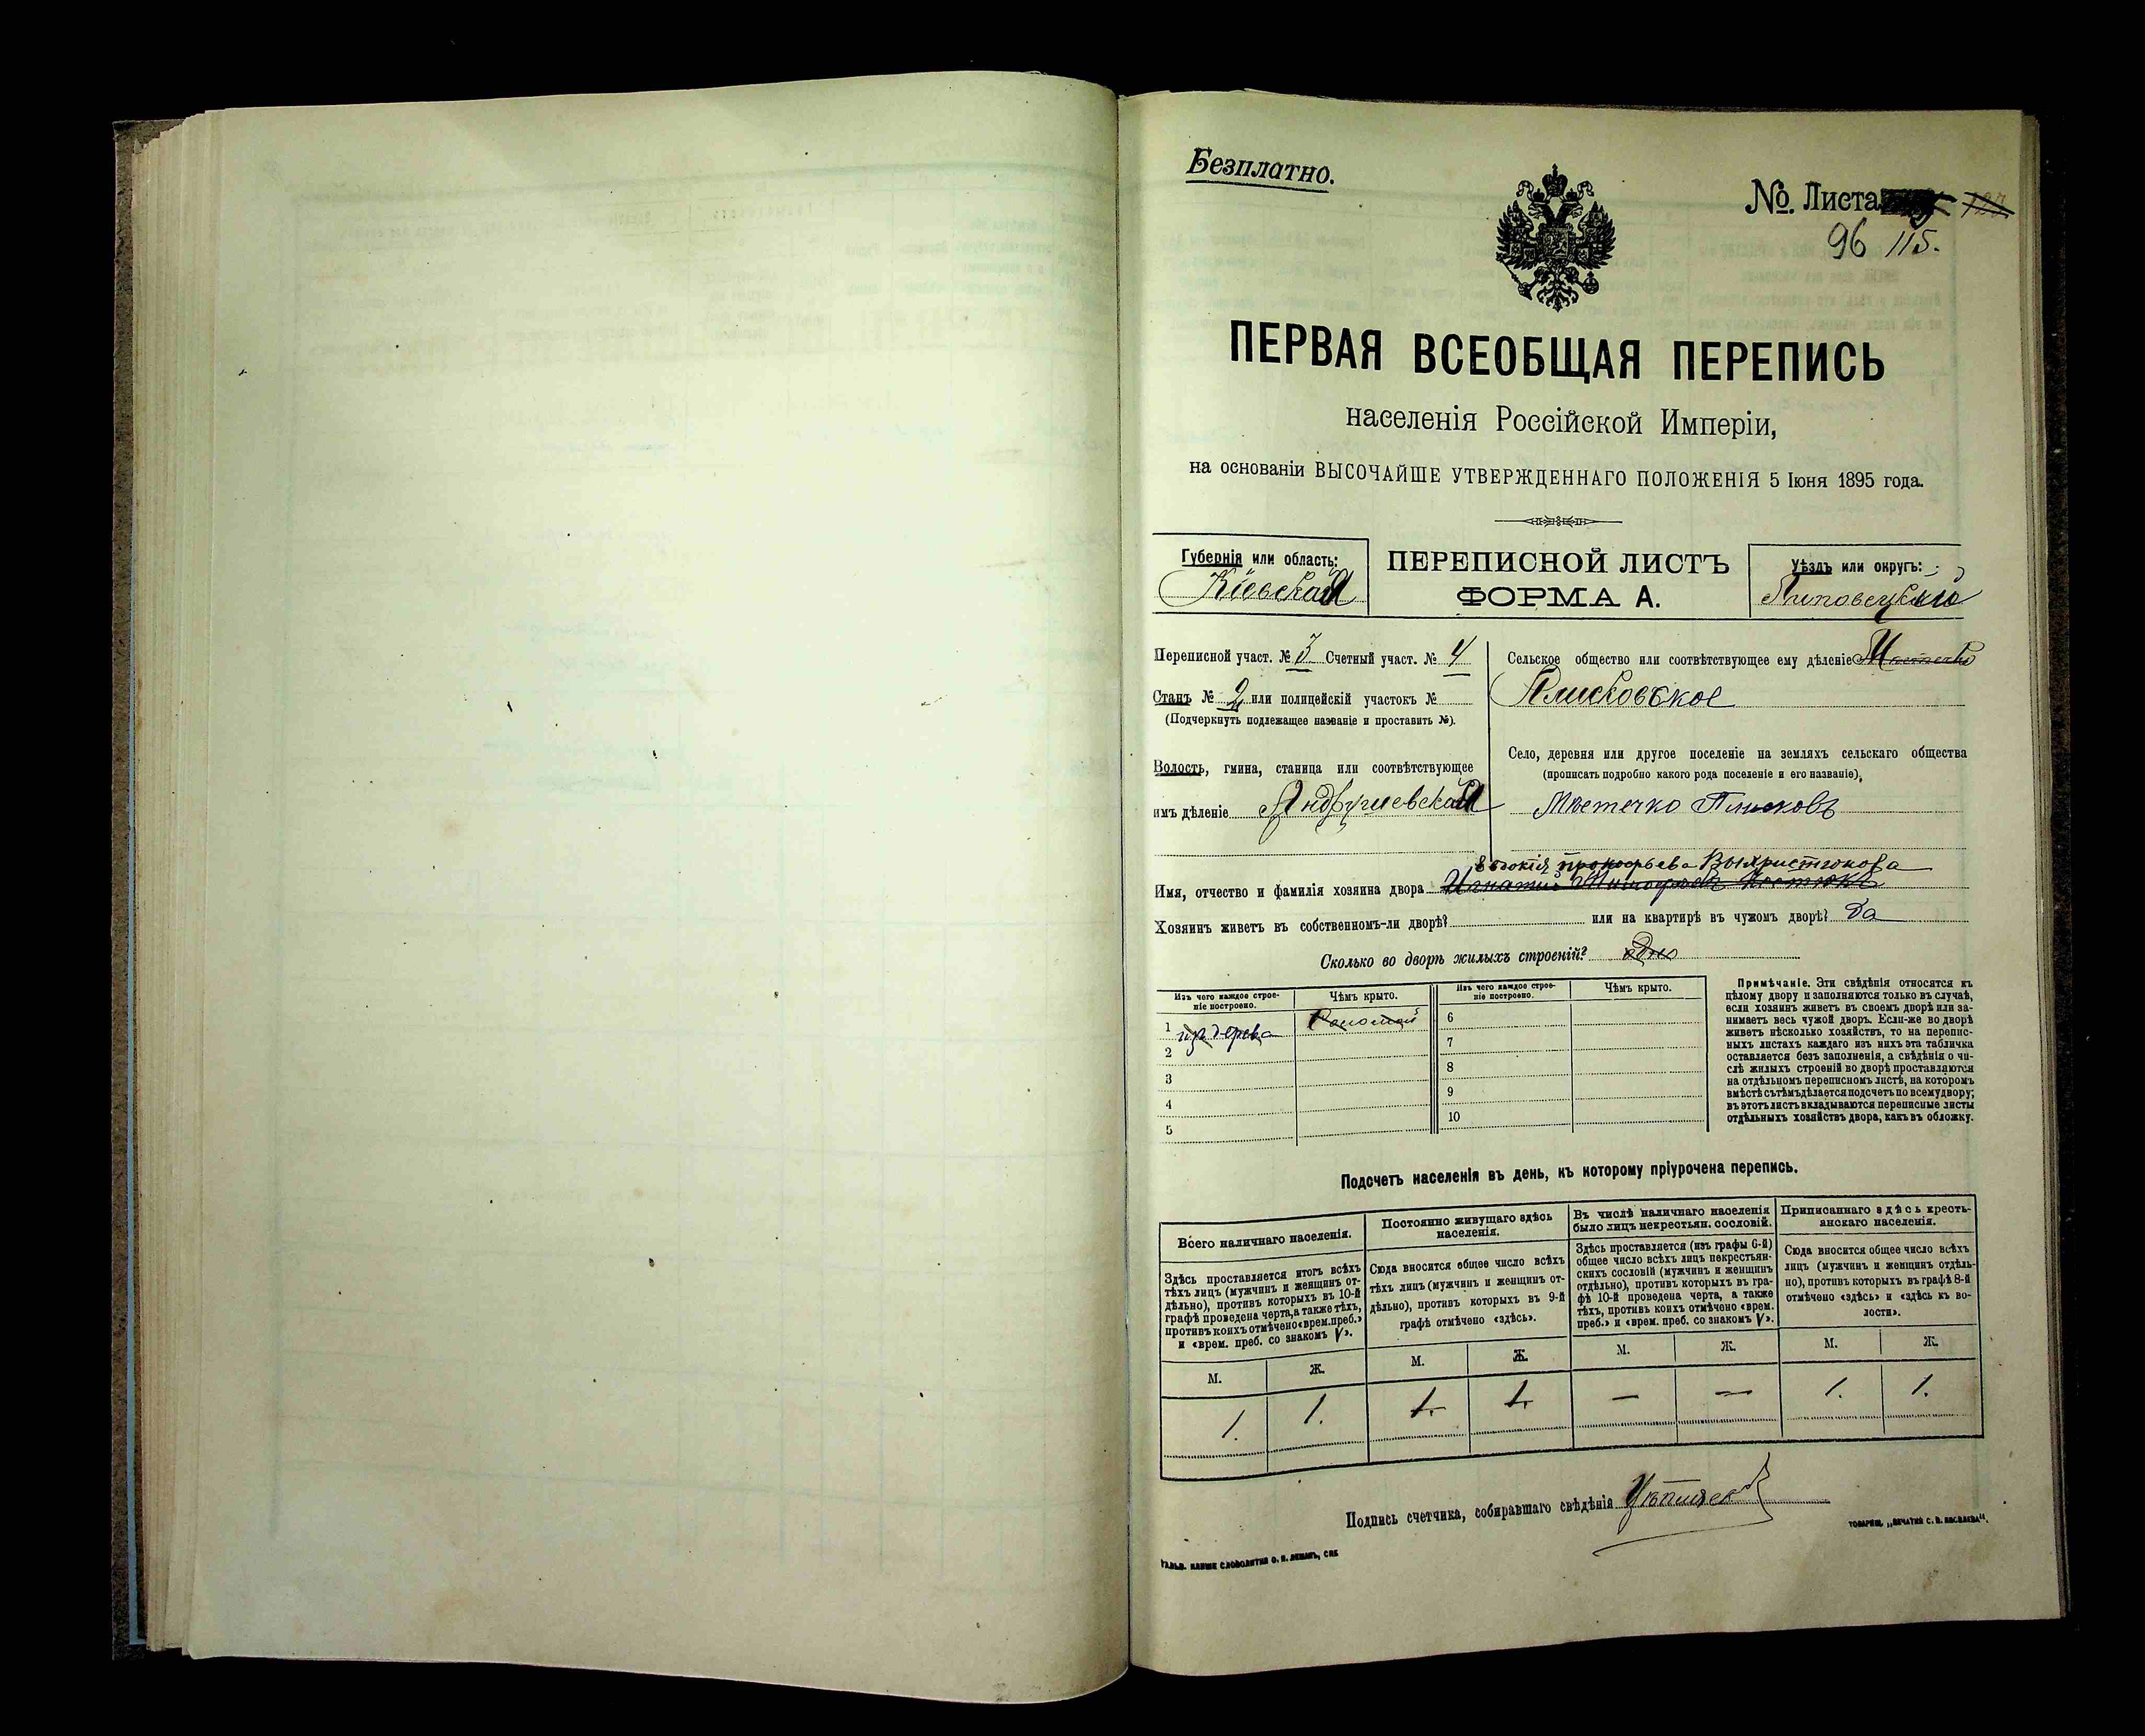 Безплатно.
№. Листа
96 115.
ПЕРВАЯ ВСЕОБЩАЯ ПЕРЕПИСЬ
населенія Россійской Имперіи,
на основаніи ВЫСОЧАЙШЕ УТВЕРЖДЕННАГО ПОЛОЖЕНІЯ 5 Іюня 1895 года.
Губернія или область:
Кіевская
ПЕРЕПИСНОЙ ЛИСТЪ
ФОРМА А.
Уѣздъ или округъ:
Липовецкій
Переписной участ. № 3 Счетный участ. № 4
Станъ № 2 или полицейскій участокъ №
(Подчеркнуть подлежащее названіе и проставить №).
Волость, гмина, станица или соотвѣтствующее
имъ дѣленіе Андрушевская
Сельское общество или соотвѣтствующее ему дѣленіе
Плисковское
Село, деревня или другое поселеніе на земляхъ сельскаго общества
(прописать подробно какого рода поселеніе и его названіе),
Мѣстечко Плисковъ
Имя, отчество и фамилія хозяина двора
Хозяинъ живетъ въ собственномъ-ли дворѣ? или на квартирѣ въ чужомъ дворѣ? да
Сколько во дворѣ жилыхъ строеній? одно
Изъ чего каждое строе-
ніе построено.
Чѣмъ крыто.
Изъ чего каждое строе-
ніе построено.
Чѣмъ крыто.
1 изъ дерева Соломой
2
3
4
5
6
7
8
9
10
Примѣчаніе. Эти свѣдѣнія относятся къ
цѣлому двору и заполняются только въ случаѣ,
если хозяинъ живетъ въ своемъ дворѣ или за-
нимаетъ весь чужой дворъ. Если-же во дворѣ
живетъ нѣсколько хозяйствъ, то на перепис-
ныхъ листахъ каждаго изъ нихъ эта табличка
оставляется безъ заполненія, а свѣдѣнія о чи-
слѣ жилыхъ строеній во дворѣ проставляются
на отдѣльномъ переписномъ листѣ, на которомъ
вмѣстѣ съ тѣмъ дѣлается подсчетъ по всему двору;
въ этотъ листъ вкладываются переписные листы
отдѣльныхъ хозяйствъ двора, какъ въ обложку.
Подсчетъ населенія въ день, къ которому пріурочена перепись.
Всего наличнаго населенія.
Здѣсь проставляется итогъ всѣхъ
тѣхъ лицъ (мужчинъ и женщинъ от-
дѣльно), противъ которыхъ въ 10-й
графѣ проведена черта, а также тѣхъ,
противъ коихъ отмѣчено «врем. преб.»
и «врем. преб. со знакомъ V».
Постоянно живущаго здѣсь
населенія.
Сюда вносится общее число всѣхъ
тѣхъ лицъ (мужчинъ и женщинъ от-
дѣльно), противъ которыхъ въ 9-й
графѣ отмѣчено «здѣсь».
Въ числѣ наличнаго населенія
было лицъ некрестьян. сословій.
Здѣсь проставляется (изъ графы 6-й)
общее число всѣхъ лицъ некрестьян-
скихъ сословій (мужчинъ и женщинъ
отдѣльно), противъ которыхъ въ гра-
фѣ 10-й проведена черта, а также
тѣхъ, противъ коихъ отмѣчено «врем.
преб.» и «врем. преб. со знакомъ V».
Приписаннаго здѣсь кресть-
янскаго населенія.
Сюда вносится общее число всѣхъ
лицъ (мужчинъ и женщинъ отдѣль-
но), противъ которыхъ въ графѣ 8-й
отмѣчено «здѣсь» и «здѣсь къ во-
лости».
М. Ж. М. Ж. М. Ж. М. Ж.
1. 1. 1. 1. — — 1. 1.
Подпись счетчика, собиравшаго свѣдѣнія